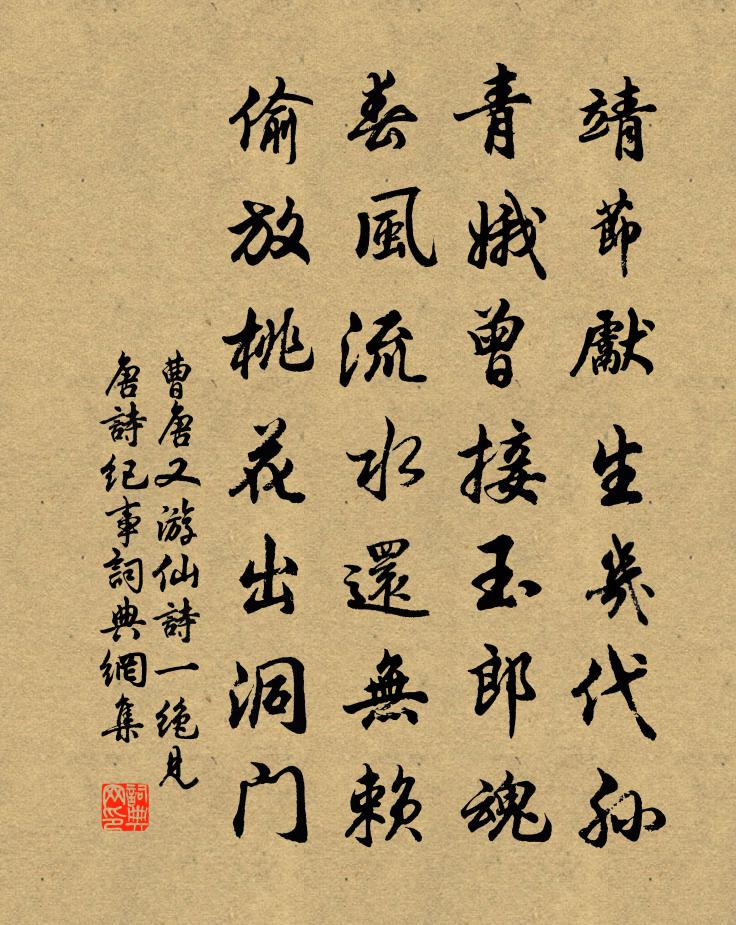 靖節獻生幾代孫
青娥曾接玉郎魂
春風流水還無賴
偷放桃花出洞門
曹唐又游仙詩一絕見
唐詩紀事詞典網集
詞典網印